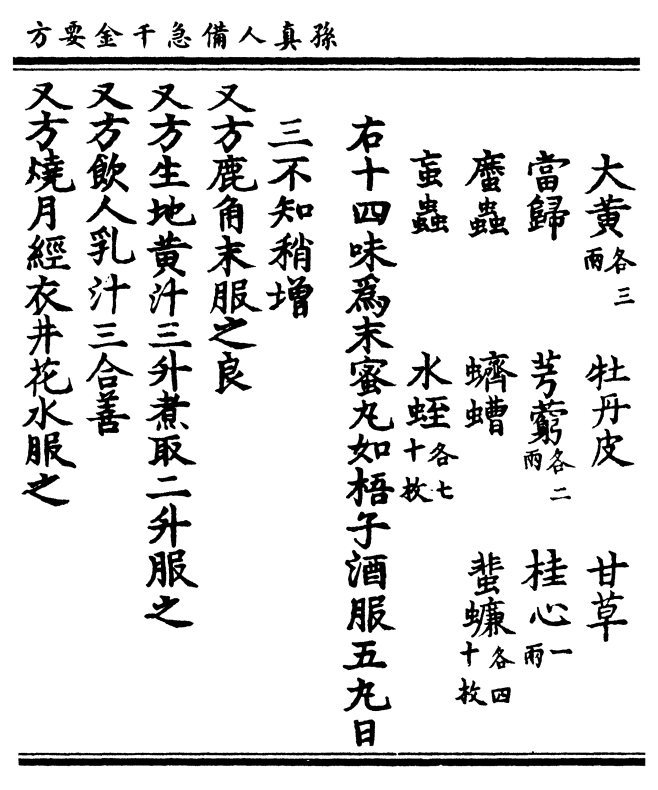 孫真人備急千金要方
大黄 牡丹皮 甘草各三兩
當歸 芎藭各二兩 桂心一兩
䗪蟲 蠐螬 蜚蠊各四十枚
䖟蟲 水蛭各七十枚
右十四味爲末蜜丸如梧子酒服五丸日
三不知稍增
又方鹿角末服之良
又方生地黄汁三升煮取二升服之
又方飲人乳汁三合善
又方燒月經衣井花水服之